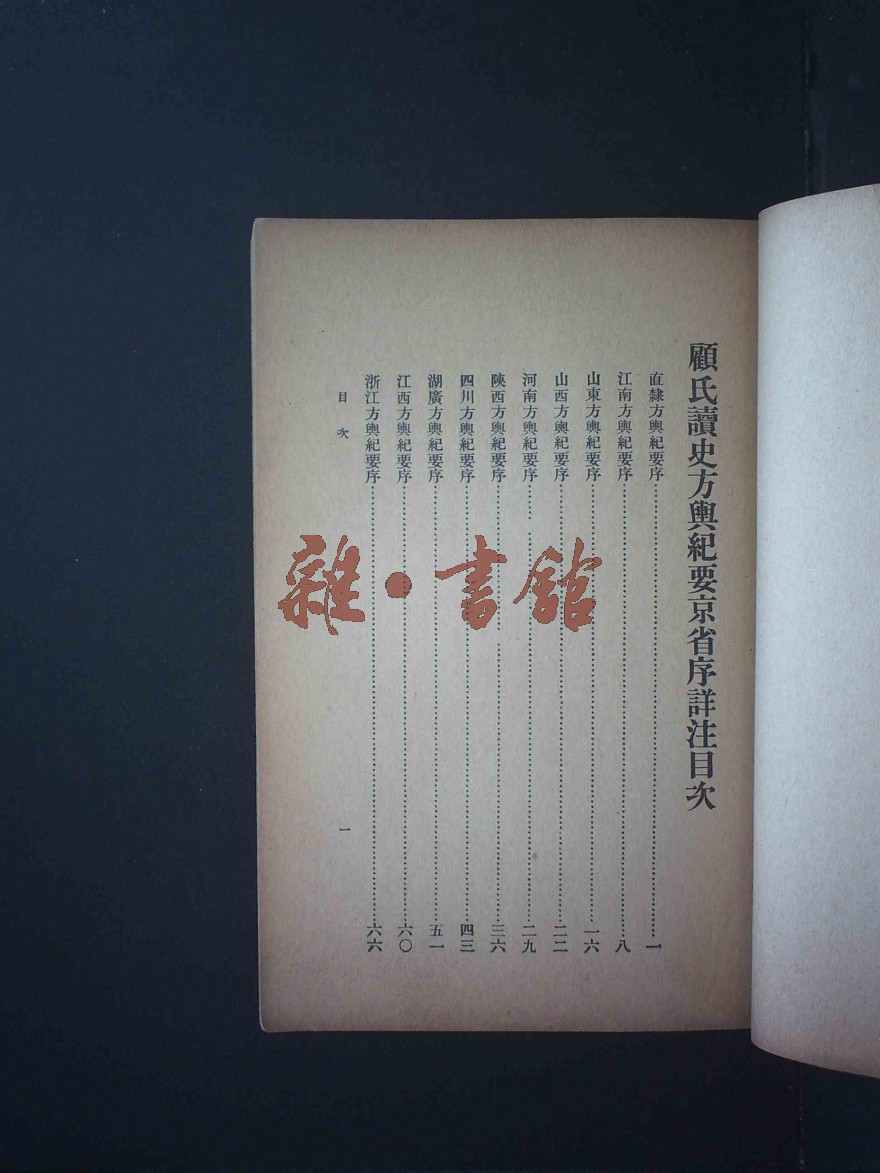 顧氏讀史方輿紀要京省序詳注目次
直隸方輿紀要序……一
江南方輿紀要序……八
山東方輿紀要序……一六
山西方輿紀要序……二二
河南方輿紀要序……二九
陝西方輿紀要序……三六
四川方輿紀要序……四三
湖廣方輿紀要序……五一
江西方輿紀要序……六〇
浙江方輿紀要序……六六
目次
一
雜·書館